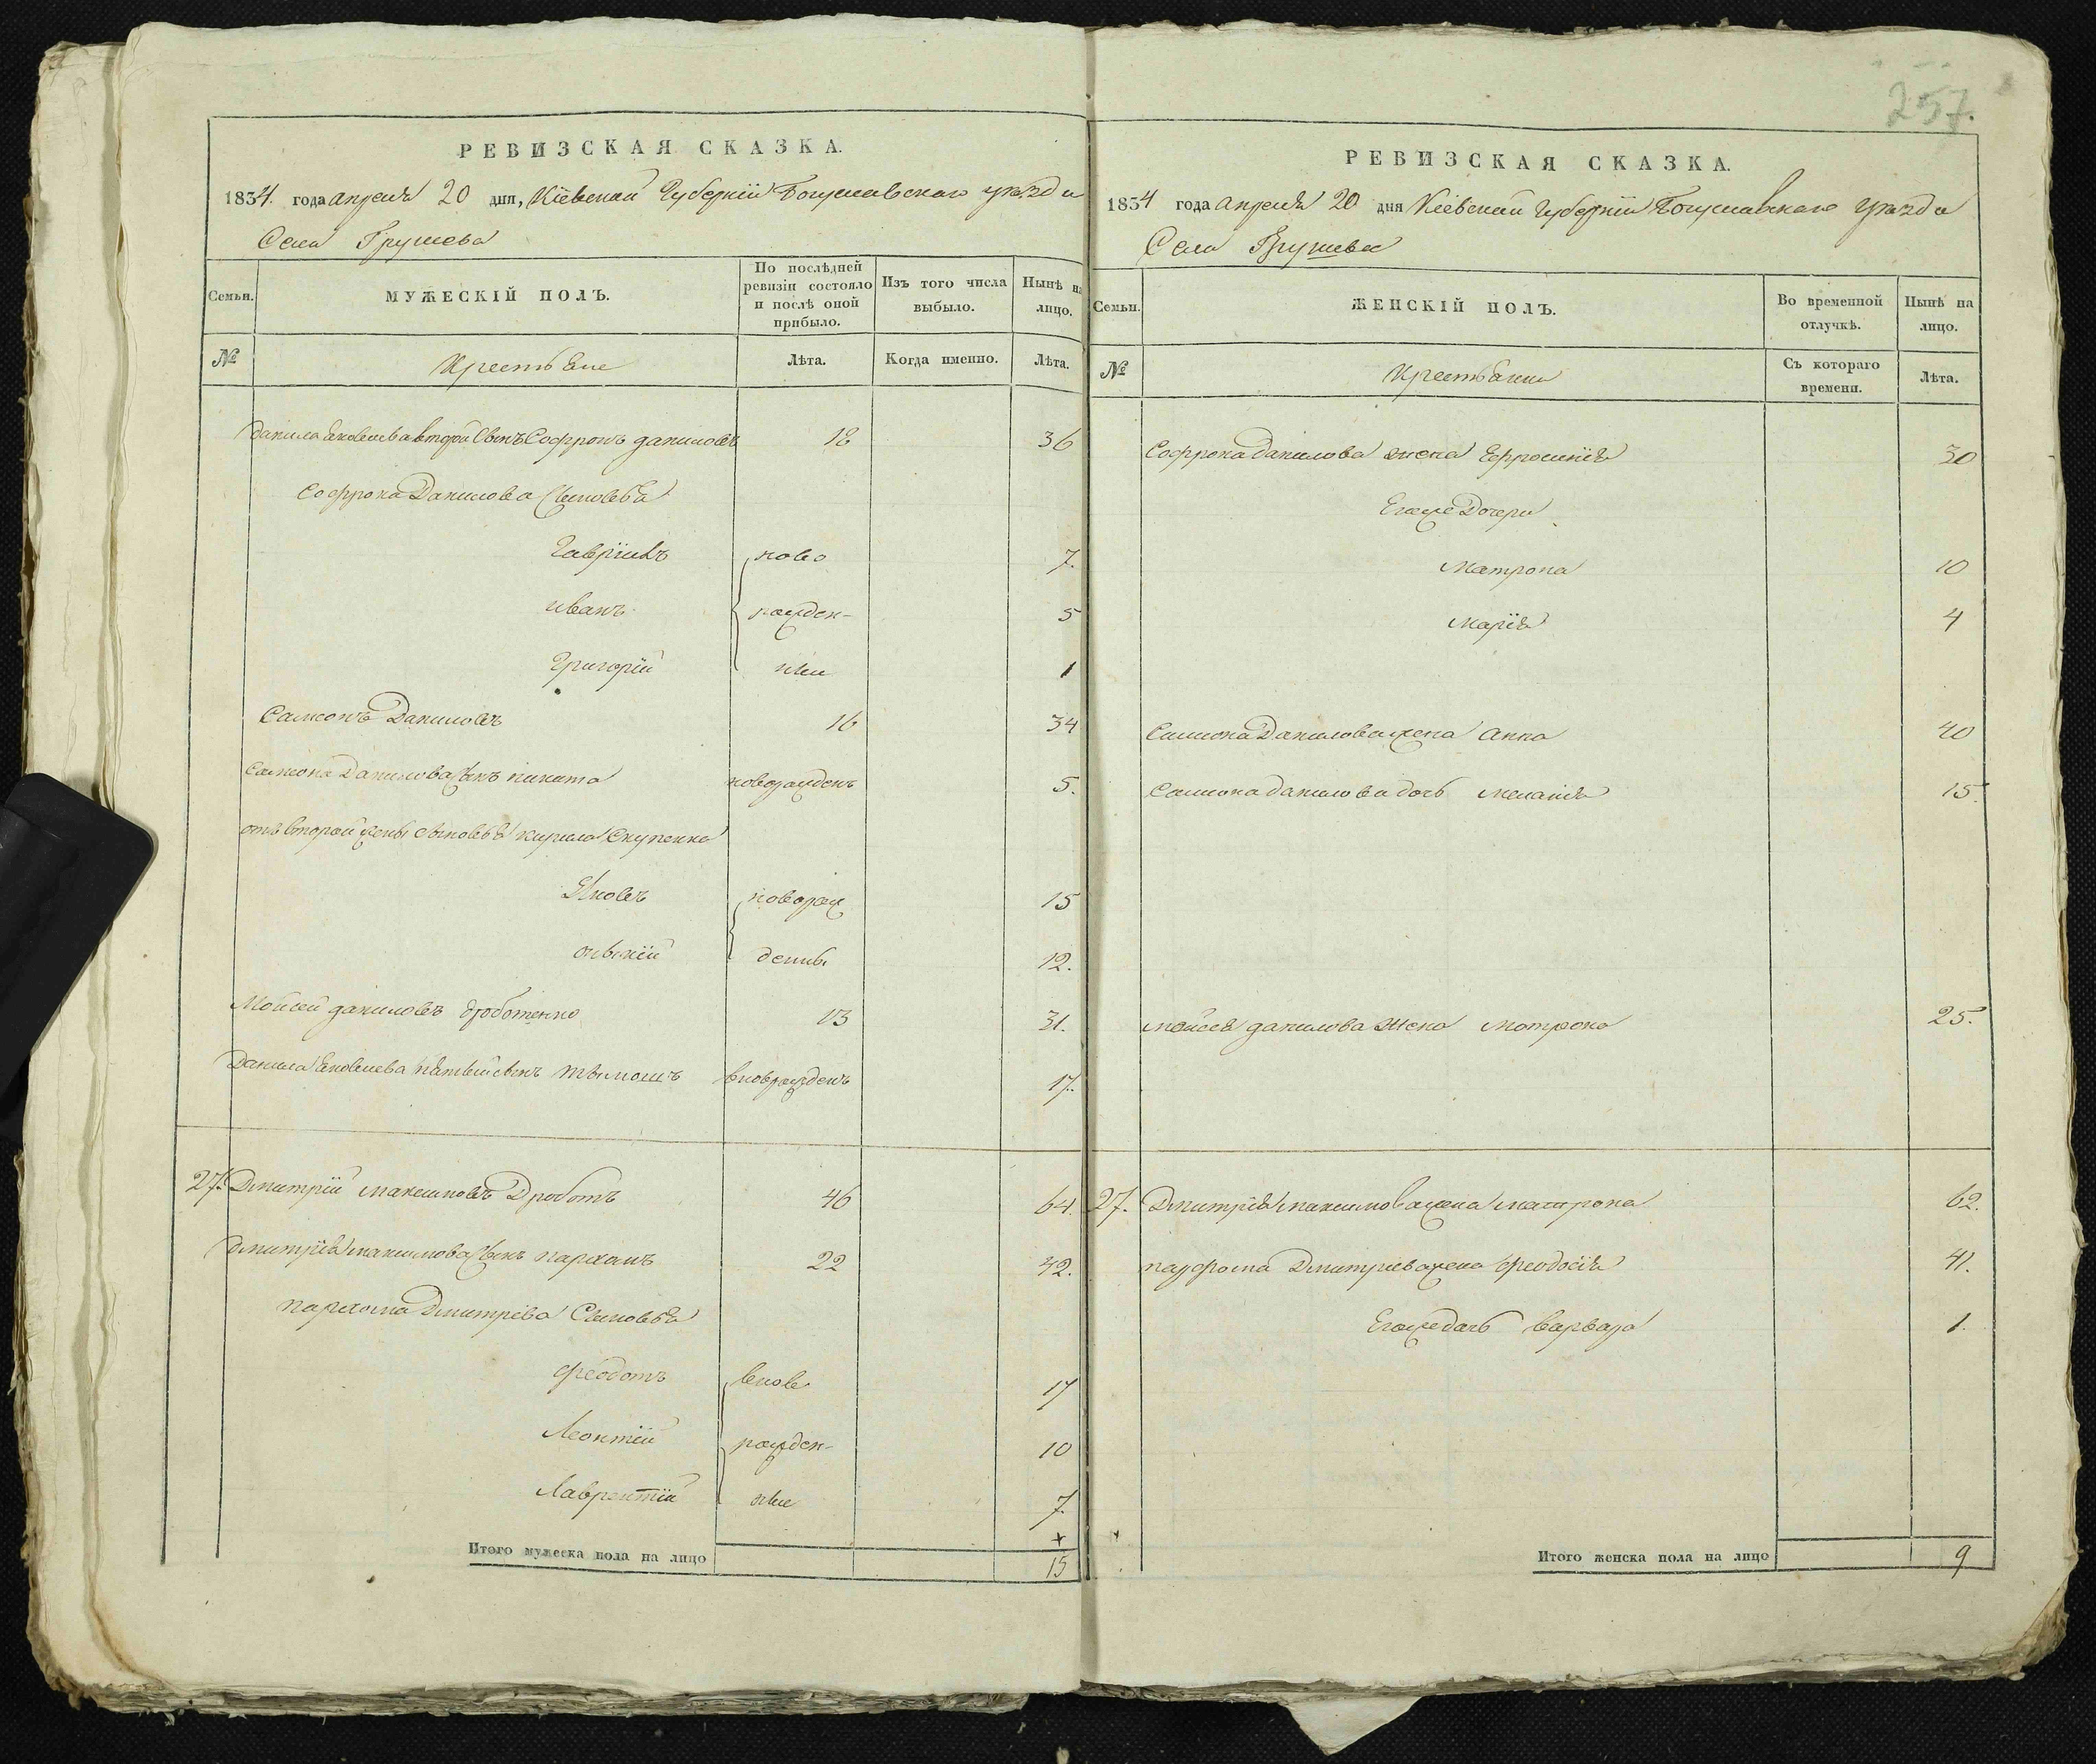 257.
РЕВИЗСКАЯ СКАЗКА.
1834. года апреля 20 дня, Кіевской Губерніи Богуславскаго уезда
Села Грушева
Семьи.
МУЖЕСКІЙ ПОЛЪ.
По послѣдней ревизіи состояло и послѣ оной прибыло.
Изъ того числа выбыло.
Нынѣ на лицо.
№
Крестьяне
Лѣта.
Когда именно.
Лѣта.
Данила Яковлева второй Сынъ Софронъ даниловъ 18 36
Софрона Данилова Сыновья
Гавріилъ ново 7.
иванъ рожден- 5
Григорій ные 1
Самсонъ Даниловъ 16 34
Самсона Данилова Сынъ никита новорожденъ 5.
отъ второй жены сыновья кирила Скупенка
Яковъ новорож 15
денны 12.
Мойсей даниловъ дроботенко 13 31.
Данила Яковлева пятый сынъ вновърожденъ 17.
27. Дмитрій максимовъ Дроботъ 46 64.
Дмитрія максимова Сынъ пархомъ 22 42.
пархома Дмитріва Сыновья
Феодотъ внове 17
Леонтій рожден- 10
Лаврентій ные 7.
Итого мужеска пола на лицо 15
РЕВИЗСКАЯ СКАЗКА.
1834 года апреля 20 дня Кіевской Губерніи Богуславскаго уезда
Села Грушева
Семьи.
ЖЕНСКІЙ ПОЛЪ.
Во временной отлучкѣ.
Нынѣ на лицо.
№
Крестьянки
Съ котораго времени.
Лѣта.
Софрона Данилова жена Ефросинія 30
Егоже Дочери
Матрона 10
Марія 4
Самсона Данилова жена Анна 40
Самсона данилова дочь меланія 15.
мойсея данилова жена Матрона 25.
27. Дмитрія максимова жена матрона 62.
парфома Дмитріева жена феодосія 41.
Егоже дочь варвара 1.
Итого женска пола на лицо 9